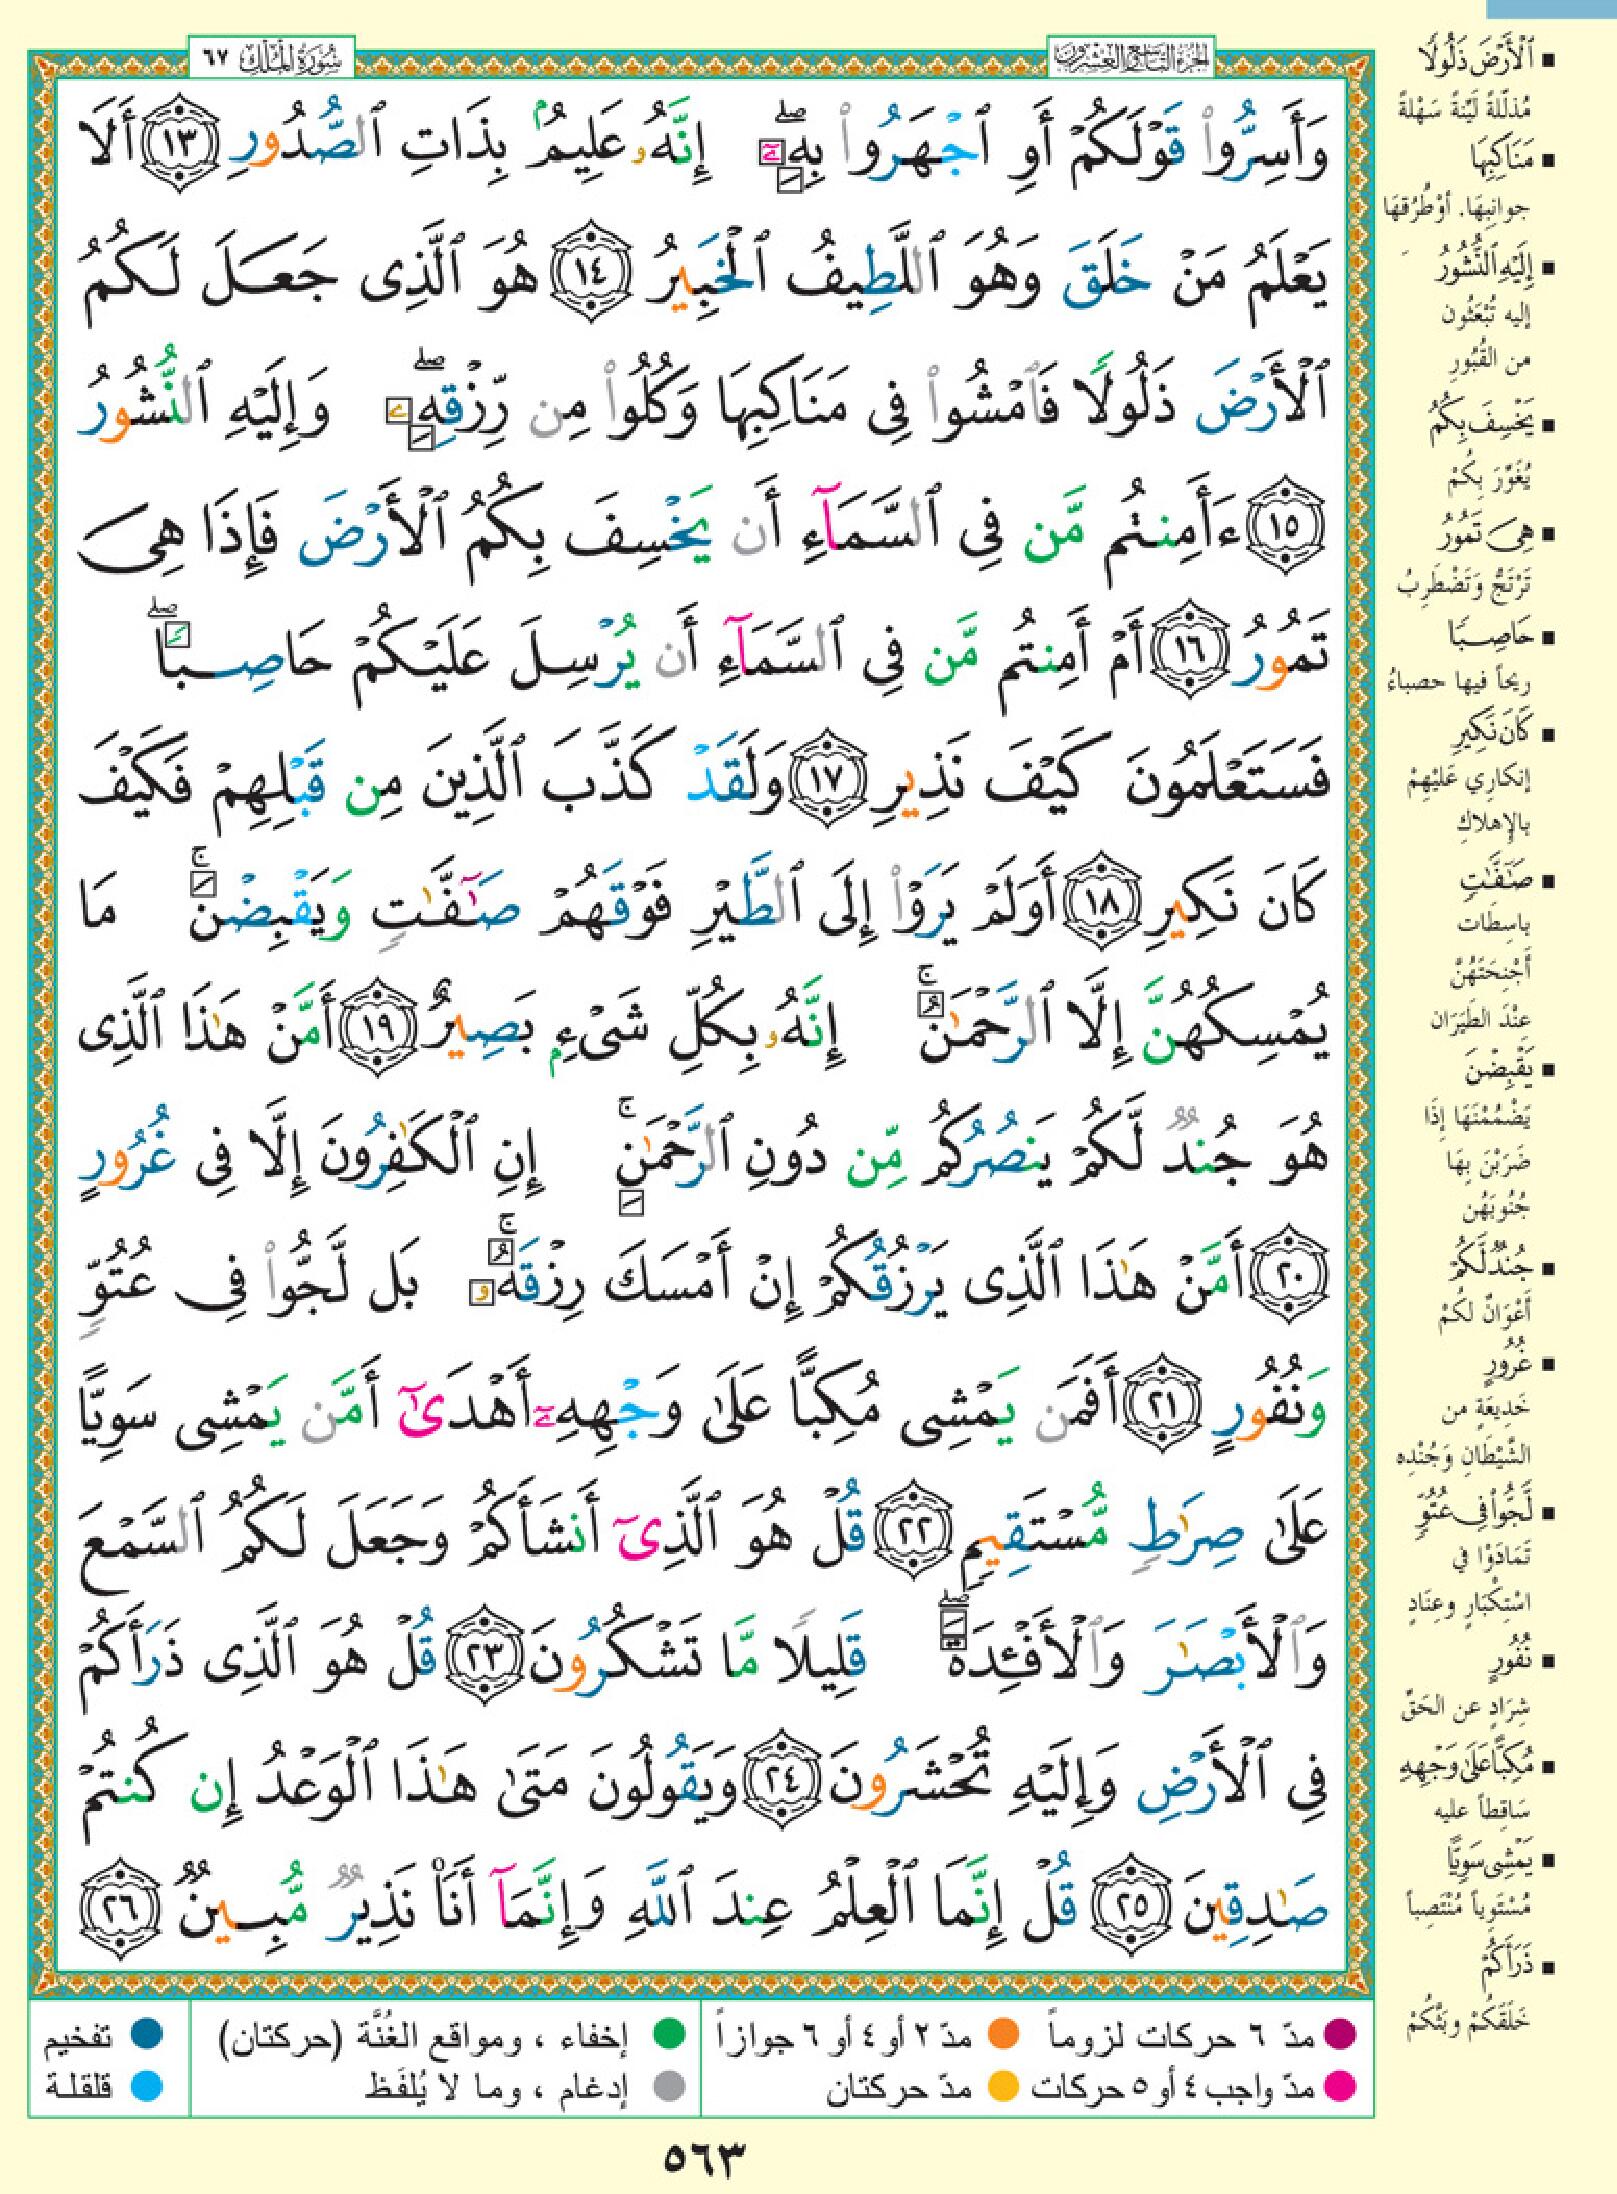 سُورَةُ المُلْكِ ٦٧
الجزء التاسع والعشرون
وَأَسِرُّوا۟ قَوْلَكُمْ أَوِ ٱجْهَرُوا۟ بِهِۦٓ ۖ إِنَّهُۥ عَلِيمٌۢ بِذَاتِ ٱلصُّدُورِ ١٣ أَلَا
يَعْلَمُ مَنْ خَلَقَ وَهُوَ ٱللَّطِيفُ ٱلْخَبِيرُ ١٤ هُوَ ٱلَّذِى جَعَلَ لَكُمُ
ٱلْأَرْضَ ذَلُولًا فَٱمْشُوا۟ فِى مَنَاكِبِهَا وَكُلُوا۟ مِن رِّزْقِهِۦ ۖ وَإِلَيْهِ ٱلنُّشُورُ
١٥ ءَأَمِنتُم مَّن فِى ٱلسَّمَآءِ أَن يَخْسِفَ بِكُمُ ٱلْأَرْضَ فَإِذَا هِىَ
تَمُورُ ١٦ أَمْ أَمِنتُم مَّن فِى ٱلسَّمَآءِ أَن يُرْسِلَ عَلَيْكُمْ حَاصِبًا ۖ
فَسَتَعْلَمُونَ كَيْفَ نَذِيرِ ١٧ وَلَقَدْ كَذَّبَ ٱلَّذِينَ مِن قَبْلِهِمْ فَكَيْفَ
كَانَ نَكِيرِ ١٨ أَوَلَمْ يَرَوْا۟ إِلَى ٱلطَّيْرِ فَوْقَهُمْ صَٰٓفَّٰتٍ وَيَقْبِضْنَ ۚ مَا
يُمْسِكُهُنَّ إِلَّا ٱلرَّحْمَٰنُ ۚ إِنَّهُۥ بِكُلِّ شَىْءٍۭ بَصِيرٌ ١٩ أَمَّنْ هَٰذَا ٱلَّذِى
هُوَ جُندٌ لَّكُمْ يَنصُرُكُم مِّن دُونِ ٱلرَّحْمَٰنِ ۚ إِنِ ٱلْكَٰفِرُونَ إِلَّا فِى غُرُورٍ
٢٠ أَمَّنْ هَٰذَا ٱلَّذِى يَرْزُقُكُمْ إِنْ أَمْسَكَ رِزْقَهُۥ ۚ بَل لَّجُّوا۟ فِى عُتُوٍّ
وَنُفُورٍ ٢١ أَفَمَن يَمْشِى مُكِبًّا عَلَىٰ وَجْهِهِۦٓ أَهْدَىٰٓ أَمَّن يَمْشِى سَوِيًّا
عَلَىٰ صِرَٰطٍ مُّسْتَقِيمٍ ٢٢ قُلْ هُوَ ٱلَّذِىٓ أَنشَأَكُمْ وَجَعَلَ لَكُمُ ٱلسَّمْعَ
وَٱلْأَبْصَٰرَ وَٱلْأَفْـِٔدَةَ ۖ قَلِيلًا مَّا تَشْكُرُونَ ٢٣ قُلْ هُوَ ٱلَّذِى ذَرَأَكُمْ
فِى ٱلْأَرْضِ وَإِلَيْهِ تُحْشَرُونَ ٢٤ وَيَقُولُونَ مَتَىٰ هَٰذَا ٱلْوَعْدُ إِن كُنتُمْ
صَٰدِقِينَ ٢٥ قُلْ إِنَّمَا ٱلْعِلْمُ عِندَ ٱللَّهِ وَإِنَّمَآ أَنَا۠ نَذِيرٌ مُّبِينٌ ٢٦
▪ ٱلْأَرْضَ ذَلُولًا
مُذَلَّلةً لَيِّنةً سَهْلةً
▪ مَنَاكِبِهَا
جوانِبِهَا. أوْ طُرُقهَا
▪ إِلَيْهِ ٱلنُّشُورُ
إليه تُبْعَثُون
من القُبُورِ
▪ يَخْسِفَ بِكُمُ
يُغَوِّرَ بِكُمْ
▪ هِىَ تَمُورُ
تَرْتَجُّ وَتَضْطَرِبُ
▪ حَاصِبًا
رِيحاً فيها حصباءُ
▪ كَانَ نَكِيرِ
إنكارِي عَلَيْهِمْ
بالإهلاكِ
▪ صَٰٓفَّٰتٍ
باسِطَات
أجْنِحَتَهُنَّ
عِنْدَ الطَيَرَان
▪ يَقْبِضْنَ
يَضْمُمْنَهَا إذَا
ضَرَبْنَ بِهَا
جُنُوبَهُن
▪ جُندٌ لَّكُمْ
أعْوَانٌ لكُمْ
▪ غُرُورٍ
خَدِيعَةٍ من
الشَّيْطَانِ وَجُنْدِه
▪ لَّجُّوا۟ فِى عُتُوٍّ
تَمَادَوْا في
اسْتِكْبَارٍ وعِنَادٍ
▪ نُفُورٍ
شِرَادٍ عن الحَقِّ
▪ مُكِبًّا عَلَىٰ وَجْهِهِ
سَاقِطاً عليه
▪ يَمْشِى سَوِيًّا
مُسْتَوِياً مُنْتَصِباً
▪ ذَرَأَكُمْ
خَلَقَكُمْ وبَثَّكُمْ
مدّ ٦ حركات لزوماً مدّ ٢ أو ٤ أو ٦ جوازاً إخفاء ، ومواقع الغُنَّة (حركتان) تفخيم
مدّ واجب ٤ أو ٥ حركات مدّ حركتان إدغام ، وما لا يُلفَظ قلقلة
٥٦٣